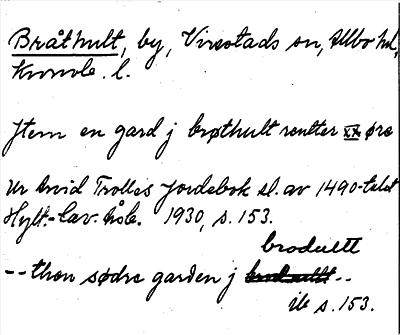 Bråthult, by, Virestads sn, Allbo hd,
Kronob. l.
Jtem en gard j brøthult renther xx øre
Ur Arvid Trolles Jordebok sl. av 1490-talet
Hylt.-Cav. håb. 1930, s. 153.
brodultt
-- then sødre garden j --
ib s. 153.